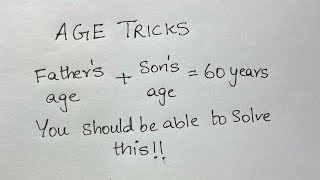 AGE TRICKS
Father's age + Son's age = 60 years
You should be able to solve
this!!